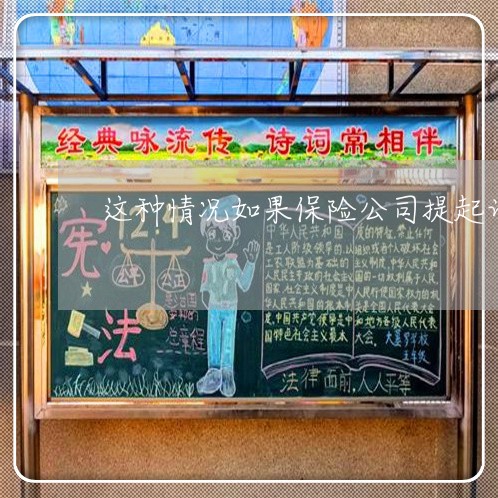 经典咏流传 诗词常相伴
这种情况如果保险公司提起
宪法
12.4
公平 公正
总章程
中华人民共和国
是工人阶级领导的,以
工农联盟为基础的
人民民主专政的社会主义
国家,社会主义制度是中
华人民共和国的根本制
度,中国共产党领导是中
国特色社会主义最本
质的特征,禁止任何
组织或者个人破坏社会
主义制度,中华人民共和
国的一切权利属于人民,
人民行使国家权力的机
关是全国人民代表大会
和地方各级人民代表
大会。
五年级
法律面前,人人平等